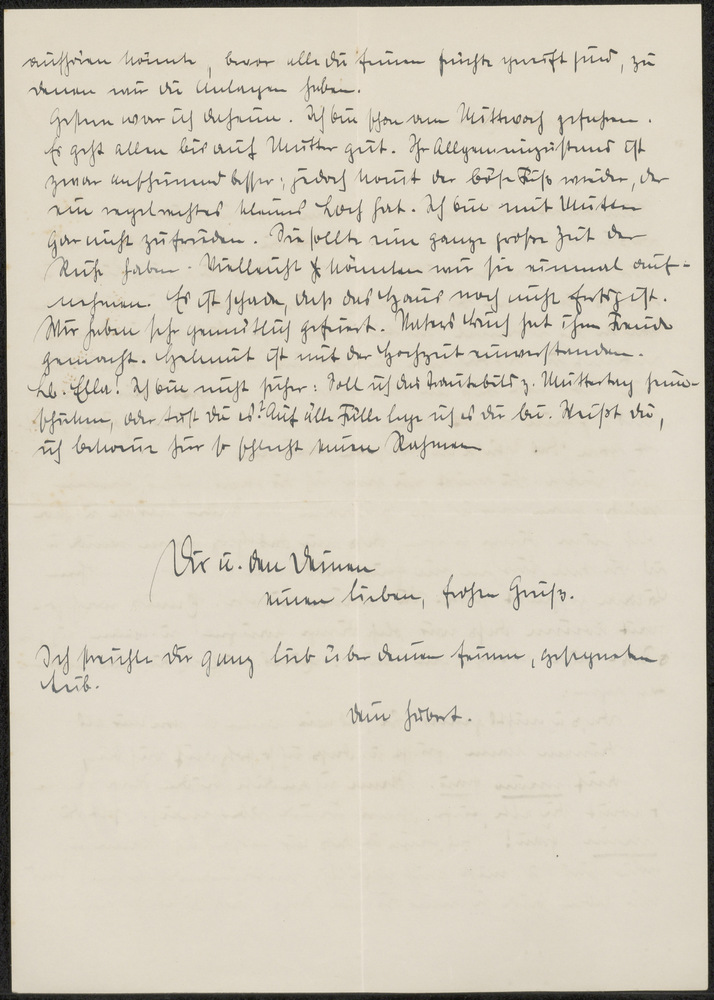 aufhören könnte, bevor alle die feinen Früchte gereift sind, zu
denen wir die Anlagen haben.
Gestern war ich daheim. Ich bin schon am Mittwoch gefahren.
Es geht allen bis auf Mutter gut. Ihr Allgemeinzustand ist
zwar anscheinend besser; jedoch kommt der böse Fuß wieder, der
ein regelrechtes kleines Loch hat. Ich bin mit Mutter
gar nicht zufrieden. Sie sollte eine ganze große Zeit der
Ruhe haben. Vielleicht könnten wir sie einmal auf-
nehmen. Es ist schade, daß das Haus noch nicht fertig ist.
Wir haben sehr gemütlich gefeiert. Vaters Buch hat ihm Freude
gemacht. Helmut ist mit der Hochzeit einverstanden.
Lb. Ella! Ich bin nicht sicher: Soll ich das Trautebild z. Muttertag heim-
schicken, oder tust Du es? Auf alle Fälle lege ich es Dir bei. Weißt Du,
ich bekomme hier so schlecht einen Rahmen
Dir u. den Deinen
einen lieben, frohen Gruß.
Ich streichle Dir ganz lieb über deinen feinen, gesegneten
Leib.
Dein Hubert.